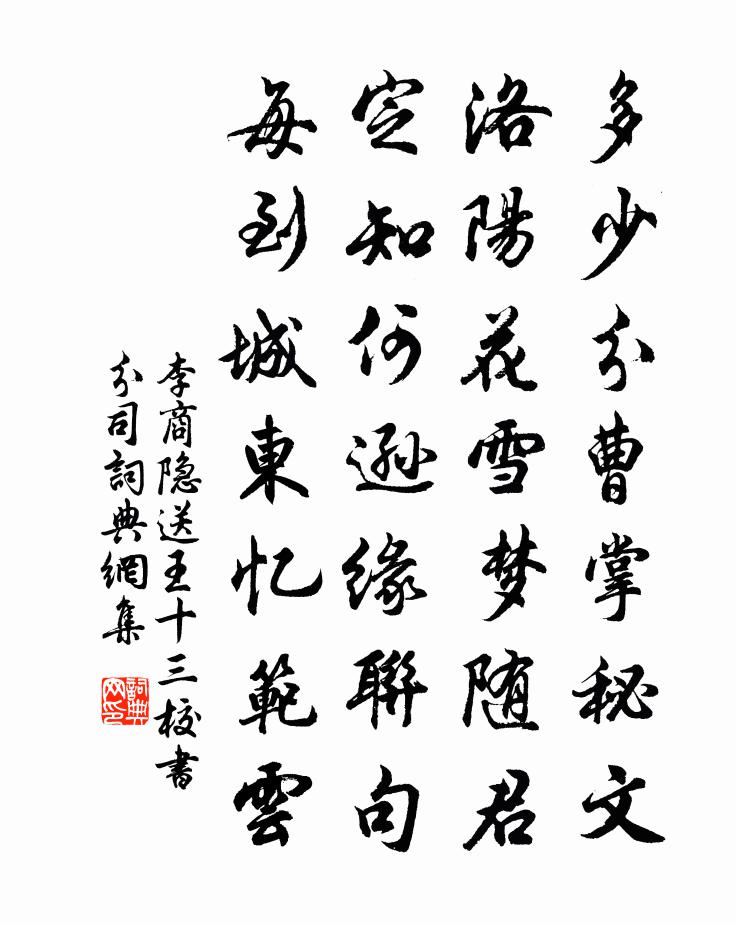 多少分曹掌秘文
洛陽花雪梦随君
定知何遜緣聯句
每到城東忆範雲
李商隐送王十三校書
分司詞典網集
詞典网印